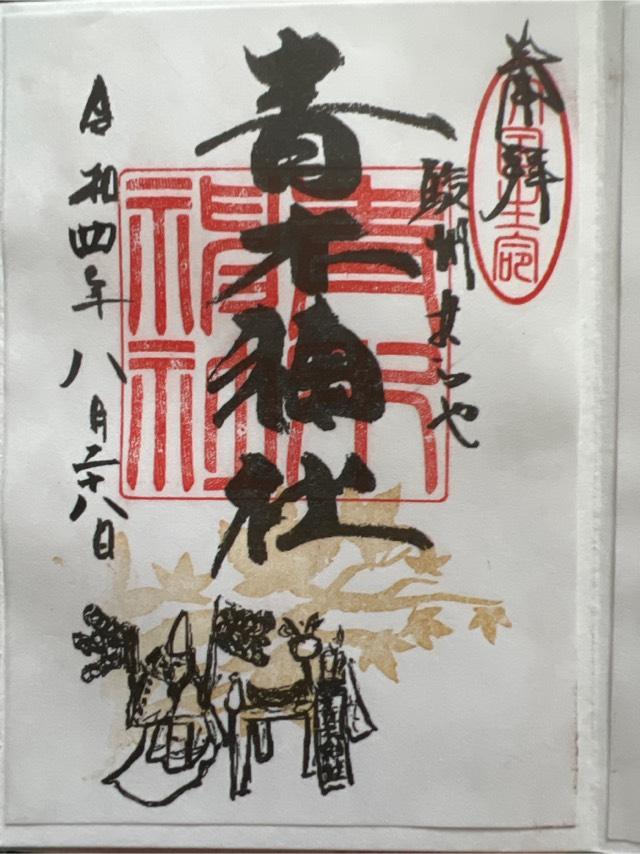 奉拝
駿州
青木神社
青木神社
令和四年八月二十八日